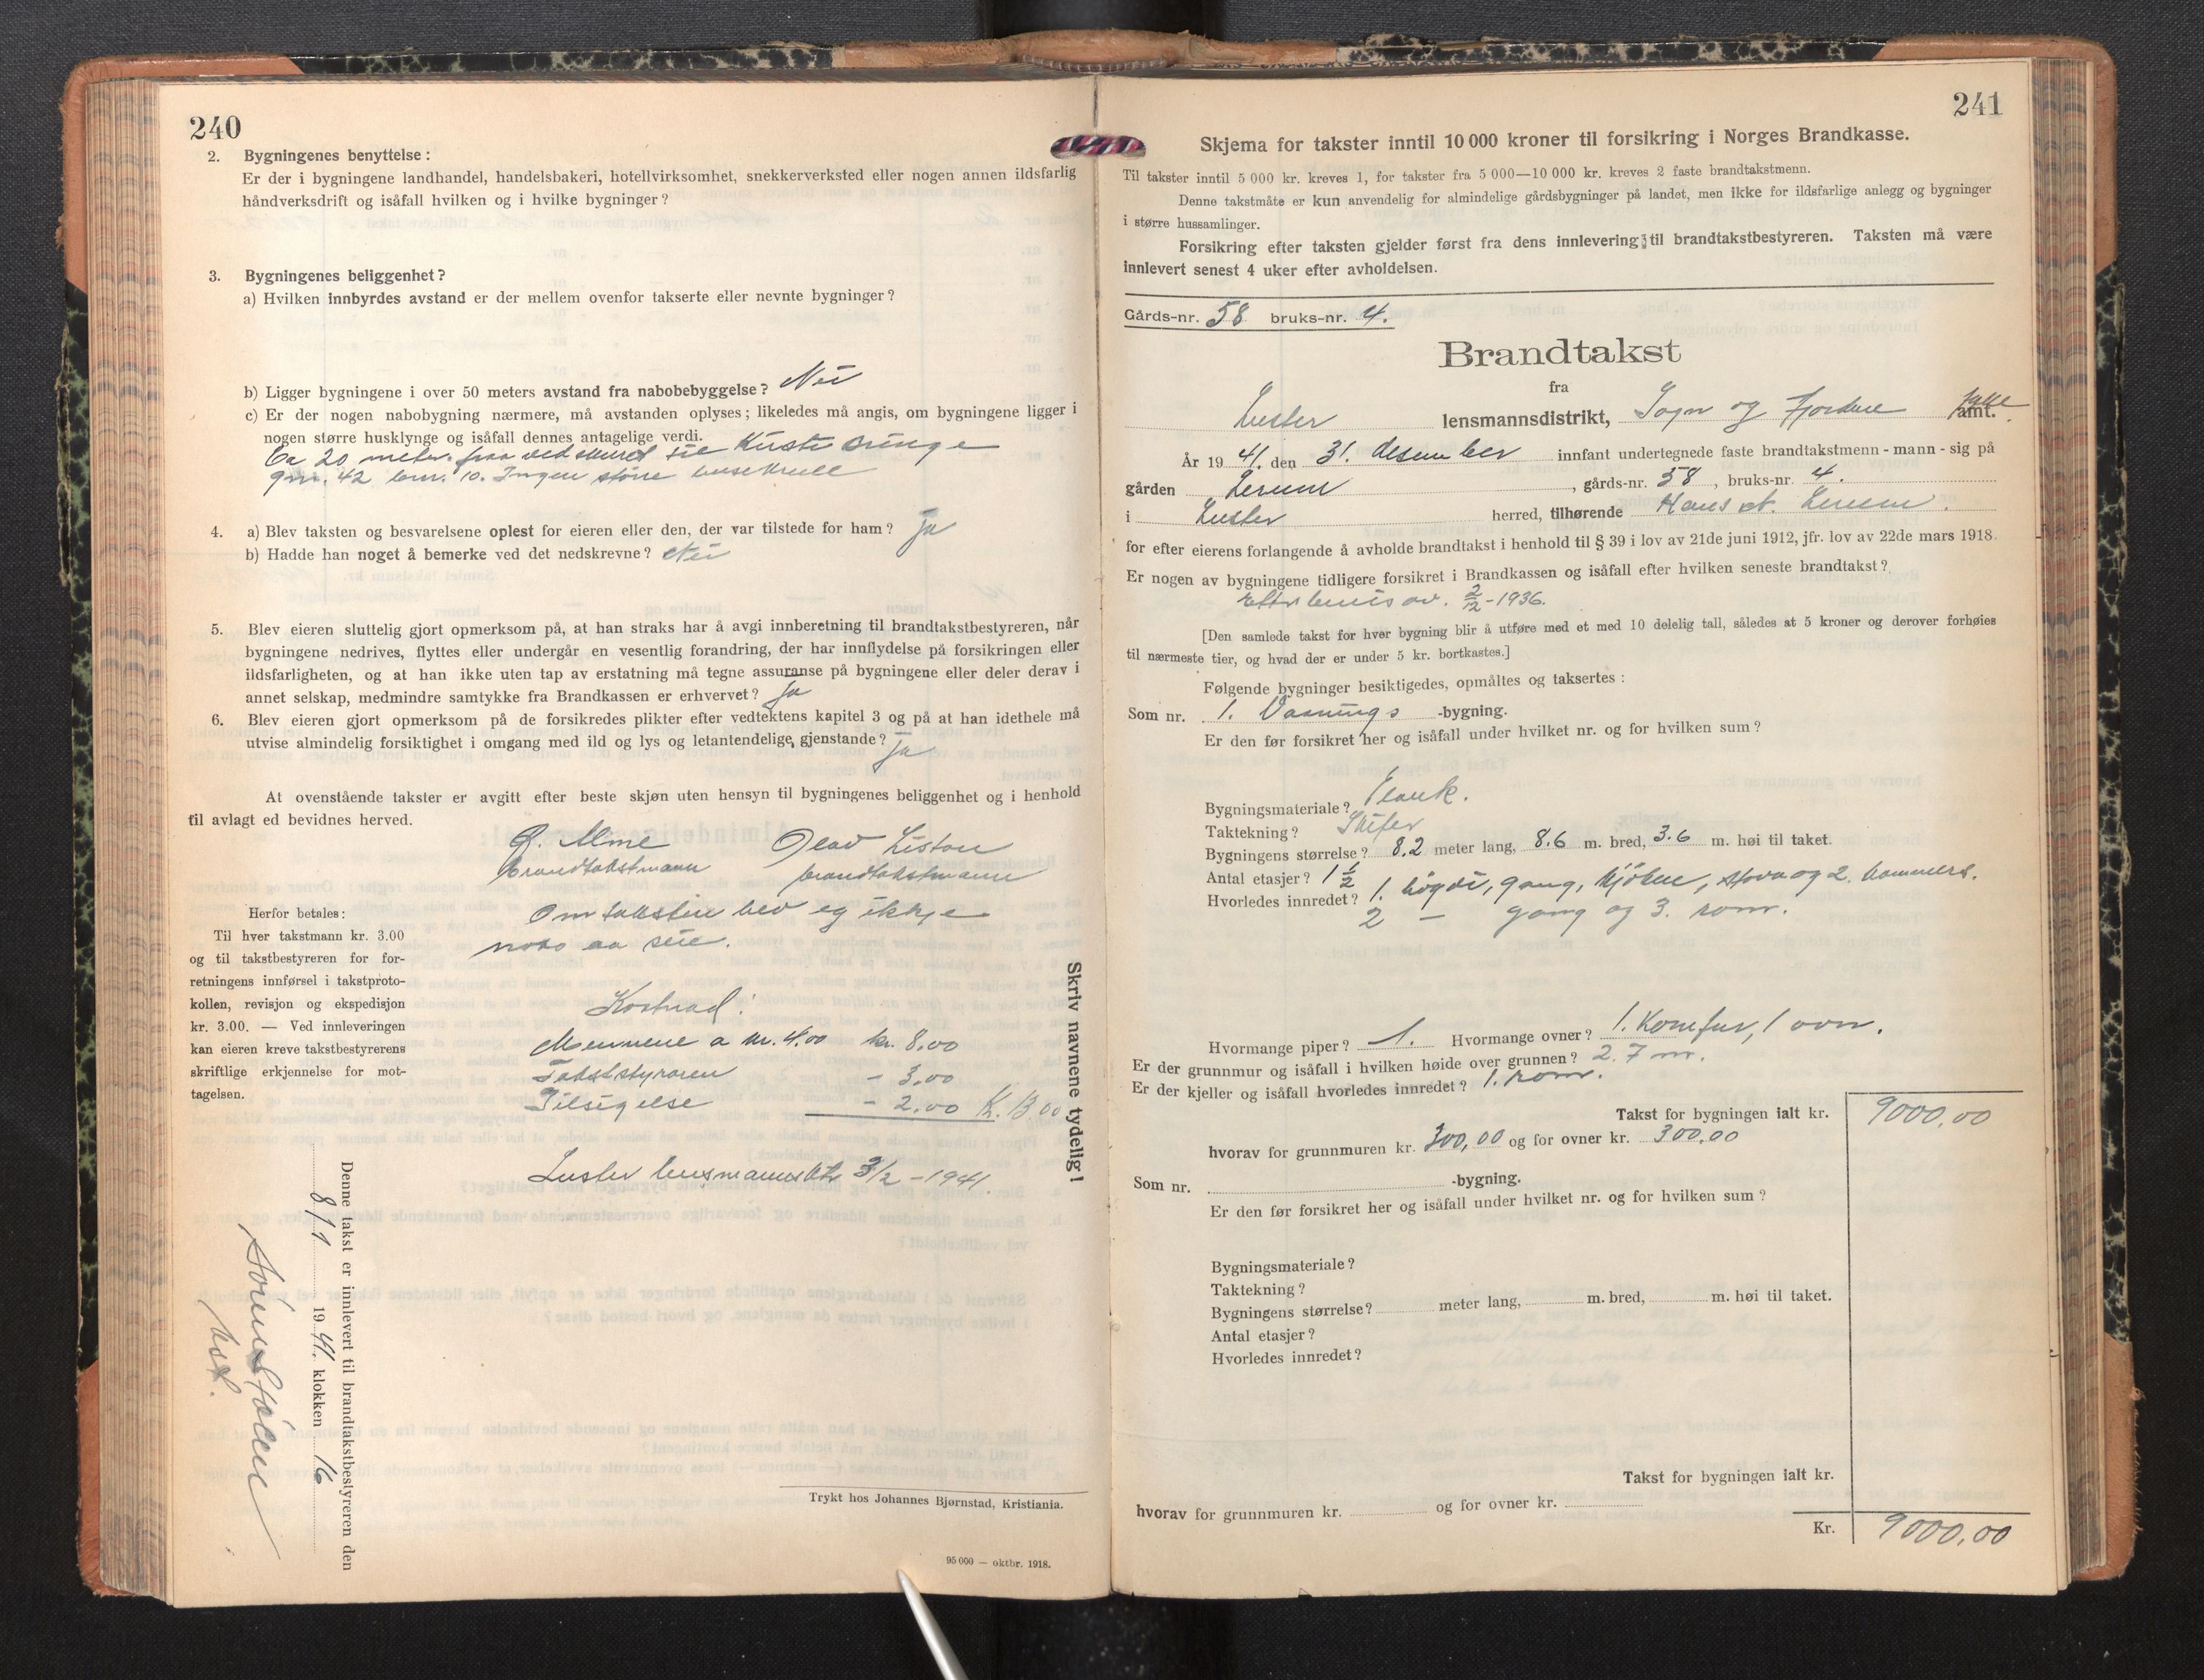 240
2. Bygningenes benyttelse:
Er der i bygningene landhandel, handelsbakeri, hotellvirksomhet, snekkerverksted eller nogen annen ildsfarlig
håndverksdrift og isåfall hvilken og i hvilke bygninger?
3. Bygningenes beliggenhet?
a) Hvilken innbyrdes avstand er der mellem ovenfor takserte eller nevnte bygninger?
b) Ligger bygningene i over 50 meters avstand fra nabobebyggelse? Nei
c) Er der nogen nabobygning nærmere, må avstanden oplyses; likeledes må angis, om bygningene ligger i
nogen større husklynge og isåfall dennes antagelige verdi.
Ca 20 meter fraa vedskuret til
gnr. 42 bnr. 10. Ingen større
4. a) Blev taksten og besvarelsene oplest for eieren eller den, der var tilstede for ham? Ja
b) Hadde han noget å bemerke ved det nedskrevne? Nei
5. Blev eieren sluttelig gjort opmerksom på, at han straks har å avgi innberetning til brandtakstbestyreren, når
bygningene nedrives, flyttes eller undergår en vesentlig forandring, der har innflydelse på forsikringen eller
ildsfarligheten, og at han ikke uten tap av erstatning må tegne assuranse på bygningene eller deler derav i
annet selskap, medmindre samtykke fra Brandkassen er erhvervet? Ja
6. Blev eieren gjort opmerksom på de forsikredes plikter efter vedtektens kapitel 3 og på at han idethele må
utvise almindelig forsiktighet i omgang med ild og lys og letantendelige, gjenstande? Ja
At ovenstående takster er avgitt efter beste skjøn uten hensyn til bygningenes beliggenhet og i henhold
til avlagt ed bevidnes herved.
Alme Olav
brandtakstmann brandtakstmann
Om taksten hev eg ikkje
noko aa seie.
Herfor betales:
Til hver takstmann kr. 3.00
og til takstbestyreren for for-
retningens innførsel i takstproto-
kollen, revisjon og ekspedisjon
kr. 3.00. — Ved innleveringen
kan eieren kreve takstbestyrerens
skriftlige erkjennelse for mot-
tagelsen.
Kostnad:
Mennene a kr. 4.00 kr. 8.00
Takststyraren - 3,00
Tilsigelse - 2.00 K. 13.00
Luster lensmannsktr 3/2 - 1941.
Skriv navnene tydelig!
Denne takst er innlevert til brandtakstbestyreren den
8/1 1941. klokken 16
Trykt hos Johannes Bjørnstad, Kristiania.
95 000 — oktbr. 1918.
241
Skjema for takster inntil 10 000 kroner til forsikring i Norges Brandkasse.
Til takster inntil 5 000 kr. kreves 1, for takster fra 5 000—10 000 kr. kreves 2 faste brandtakstmenn.
Denne takstmåte er kun anvendelig for almindelige gårdsbygninger på landet, men ikke for ildsfarlige anlegg og bygninger
i større hussamlinger.
Forsikring efter taksten gjelder først fra dens innlevering til brandtakstbestyreren. Taksten må være
innlevert senest 4 uker efter avholdelsen.
Gårds-nr. 58 bruks-nr. 4.
Brandtakst
fra
Luster lensmannsdistrikt, Sogn og Fjordane fylke amt.
År 1941. den 31. desember innfant undertegnede faste brandtakstmenn - mann - sig på
gården Lerum, gårds-nr. 58, bruks-nr. 4.
i Luster herred, tilhørende Hans A. Lerum.
for efter eierens forlangende å avholde brandtakst i henhold til § 39 i lov av 21de juni 1912, jfr. lov av 22de mars 1918.
Er nogen av bygningene tidligere forsikret i Brandkassen og isåfall efter hvilken seneste brandtakst?
Etter bevis av. 2/12 - 1936.
[Den samlede takst for hver bygning blir å utføre med et med 10 delelig tall, således at 5 kroner og derover forhøies
til nærmeste tier, og hvad der er under 5 kr. bortkastes.]
Følgende bygninger besiktigedes, opmåltes og taksertes:
Som nr. 1. Vaanings -bygning.
Er den før forsikret her og isåfall under hvilket nr. og for hvilken sum?
Bygningsmateriale? Plank.
Taktekning? Skifer
Bygningens størrelse? 8,2 meter lang, 8.6 m. bred, 3.6 m. høi til taket.
Antal etasjer? 1 1/2
Hvorledes innredet? 1. høgdi, gang, kjøken, stova og 2. kammers.
2 — gang og 3. rom.
Hvormange piper? 1. Hvormange ovner? 1. Komfur, 1 ovn.
Er der grunnmur og isåfall i hvilken høide over grunnen? 2.7 m.
Er der kjeller og isåfall hvorledes innredet? 1. rom.
Takst for bygningen ialt kr. 9000.00
hvorav for grunnmuren kr. 300,00 og for ovner kr. 300.00
Som nr. -bygning.
Er den før forsikret her og isåfall under hvilket nr. og for hvilken sum?
Bygningsmateriale?
Taktekning?
Bygningens størrelse? meter lang, m. bred, m. høi til taket.
Antal etasjer?
Hvorledes innredet?
Takst for bygningen ialt kr.
hvorav for grunnmuren kr. og for ovner kr.
Kr. 9000.00